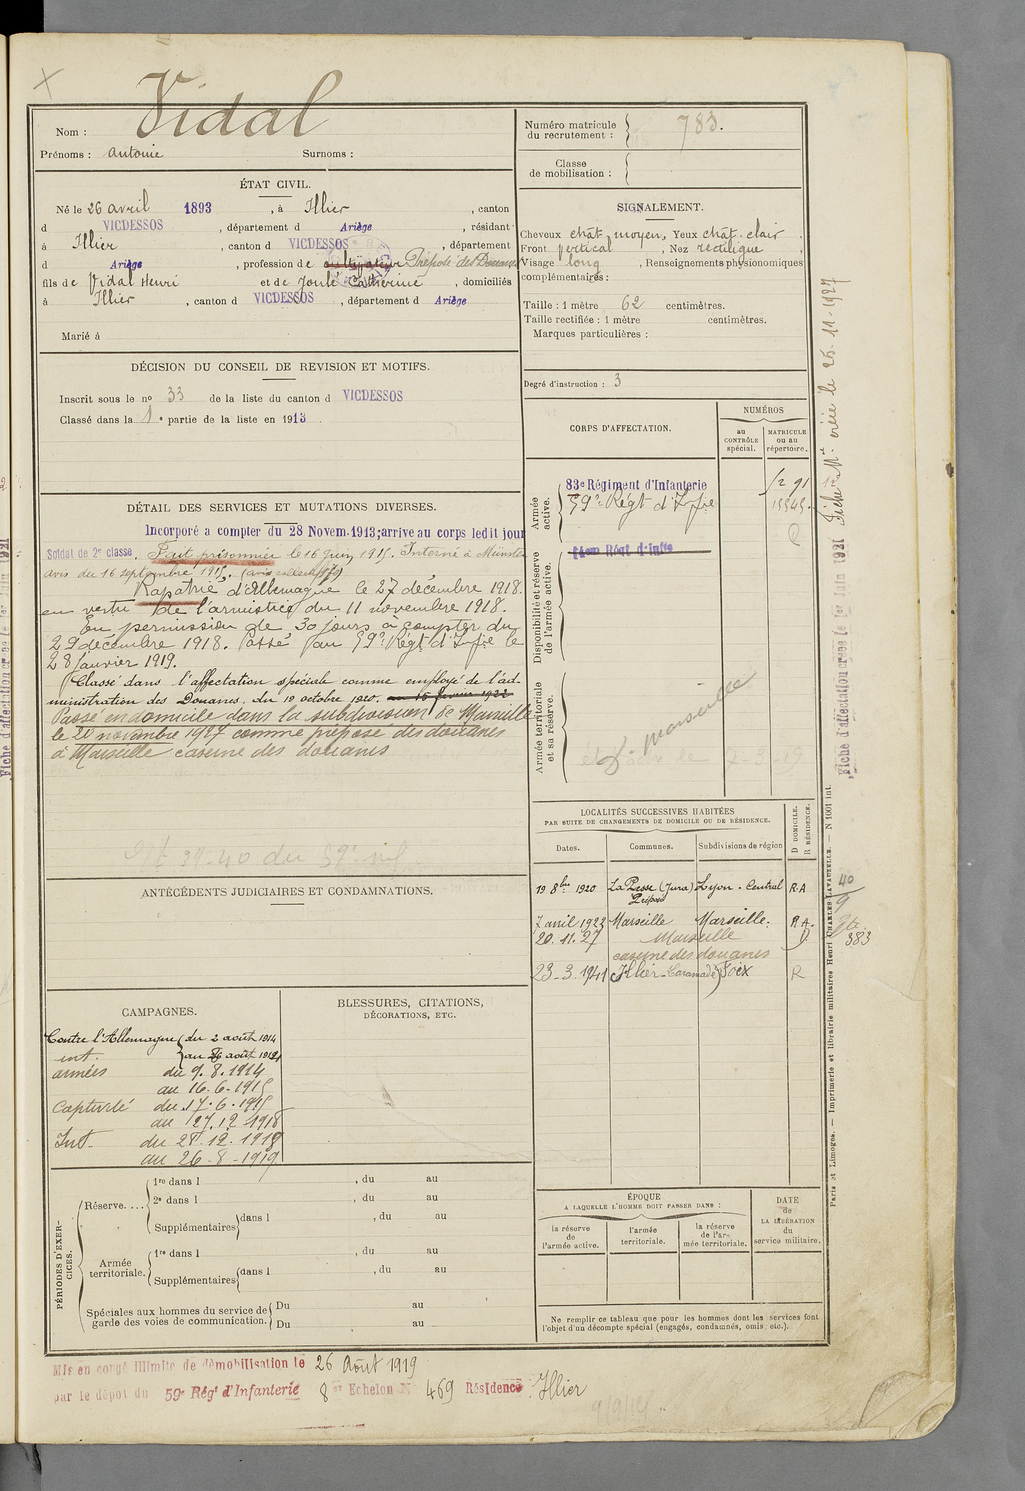 Vidal
Nom :
Prénoms : Antonie Surnoms :
Numéro matricule du recrutement : 783.
Classe de mobilisation :
ÉTAT CIVIL.
Né le 26 avril 1893, à Illier, canton
d VICDESSOS, département d Ariège, résidant
à Illier, canton d VICDESSOS, département
d Ariège, profession de cultivateur Préposé des Douanes
fils de Vidal Henri et de Joulé Catherine, domiciliés
à Illier, canton d VICDESSOS, département d Ariège
Marié à
SIGNALEMENT.
Cheveux chât. moyen, Yeux chât. clair,
Front vertical, Nez rectiligne
Visage long, Renseignements physionomiques
complémentaires :
Taille : 1 mètre 62 centimètres.
Taille rectifiée : 1 mètre centimètres.
Marques particulières :
Degré d'instruction : 3
DÉCISION DU CONSEIL DE REVISION ET MOTIFS.
Inscrit sous le no 33 de la liste du canton d VICDESSOS
Classé dans la 1e partie de la liste en 1913
DÉTAIL DES SERVICES ET MUTATIONS DIVERSES.
Incorporé a compter du 28 Novem. 1913; arrive au corps ledit jour
Soldat de 2e classe. Fait prisonnier le 16 juin 1915. Interné à Münster
avis du 16 septembre 1915.
Rapatrié d'Allemagne le 27 décembre 1918.
en vertu de l'armistice du 11 novembre 1918.
En permission de 30 jours à compter du
29 décembre 1918. Passé au 59e Régt d'Infie le
28 janvier 1919.
Classé dans l'affectation spéciale comme employé de l'ad-
ministration des Douanes, du 19 octobre 1920. au 15 février 1922
Passé en domicile dans la subdivision de Marseille
le 20 novembre 1927 comme préposé des douanes
à Marseille caserne des douanes
CORPS D'AFFECTATION.
NUMÉROS
au CONTRÔLE spécial.
MATRICULE ou au répertoire.
Armée active.
83e Régiment d'Infanterie
59e Régt d'Infie
Disponibilité et réserve de l'armée active.
Régt d'Infie
Armée territoriale et sa réserve.
Marseille
LOCALITÉS SUCCESSIVES HABITÉES
PAR SUITE DE CHANGEMENTS DE DOMICILE OU DE RÉSIDENCE.
Dates. Communes. Subdivisions de région
D DOMICILE. R RÉSIDENCE.
19 8bre 1920 (Jura) Lyon - Central R A
Préposé
7 avril 1923 Marseille Marseille. R.A.
20.11.27 Marseille D.
caserne des douanes
23-3-1941 Illier-Laramade Foix R
ANTÉCÉDENTS JUDICIAIRES ET CONDAMNATIONS.
CAMPAGNES.
Contre l'Allemagne du 2 août 1914
int. au 8 août 1914
armées du 9.8.1914
au 16-6-1915
Captivité du 17-6-1915
au 27.12.1918
Int. du 28.12.1918
au 26-8-1919
BLESSURES, CITATIONS,
DÉCORATIONS, ETC.
PÉRIODES D'EXERCICES.
Réserve.... 1re dans l , du au
2e dans l , du au
Supplémentaires dans l , du au
Armée territoriale. 1re dans l , du au
Supplémentaires dans l , du au
Spéciales aux hommes du service de garde des voies de communication. Du au
Du au
ÉPOQUE
A LAQUELLE L'HOMME DOIT PASSER DANS :
la réserve de l'armée active.
l'armée territoriale.
la réserve de l'armée territoriale.
DATE de LA LIBÉRATION du service militaire.
Ne remplir ce tableau que pour les hommes dont les services font
l'objet d'un décompte spécial (engagés, condamnés, omis, etc.).
Mis en congé illimité de démobilisation le 26 Août 1919
par le dépôt du 59e Régt d'Infanterie 8e Echelon N° 469 Résidence Illier
Fiche Mle créée le 25-11-1927
Fiche d'affectation créée le 1er Juin 1921
Paris et Limoges. — Imprimerie et librairie militaires Henri CHARLES-LAVAUZELLE. — N 1001 int.
383